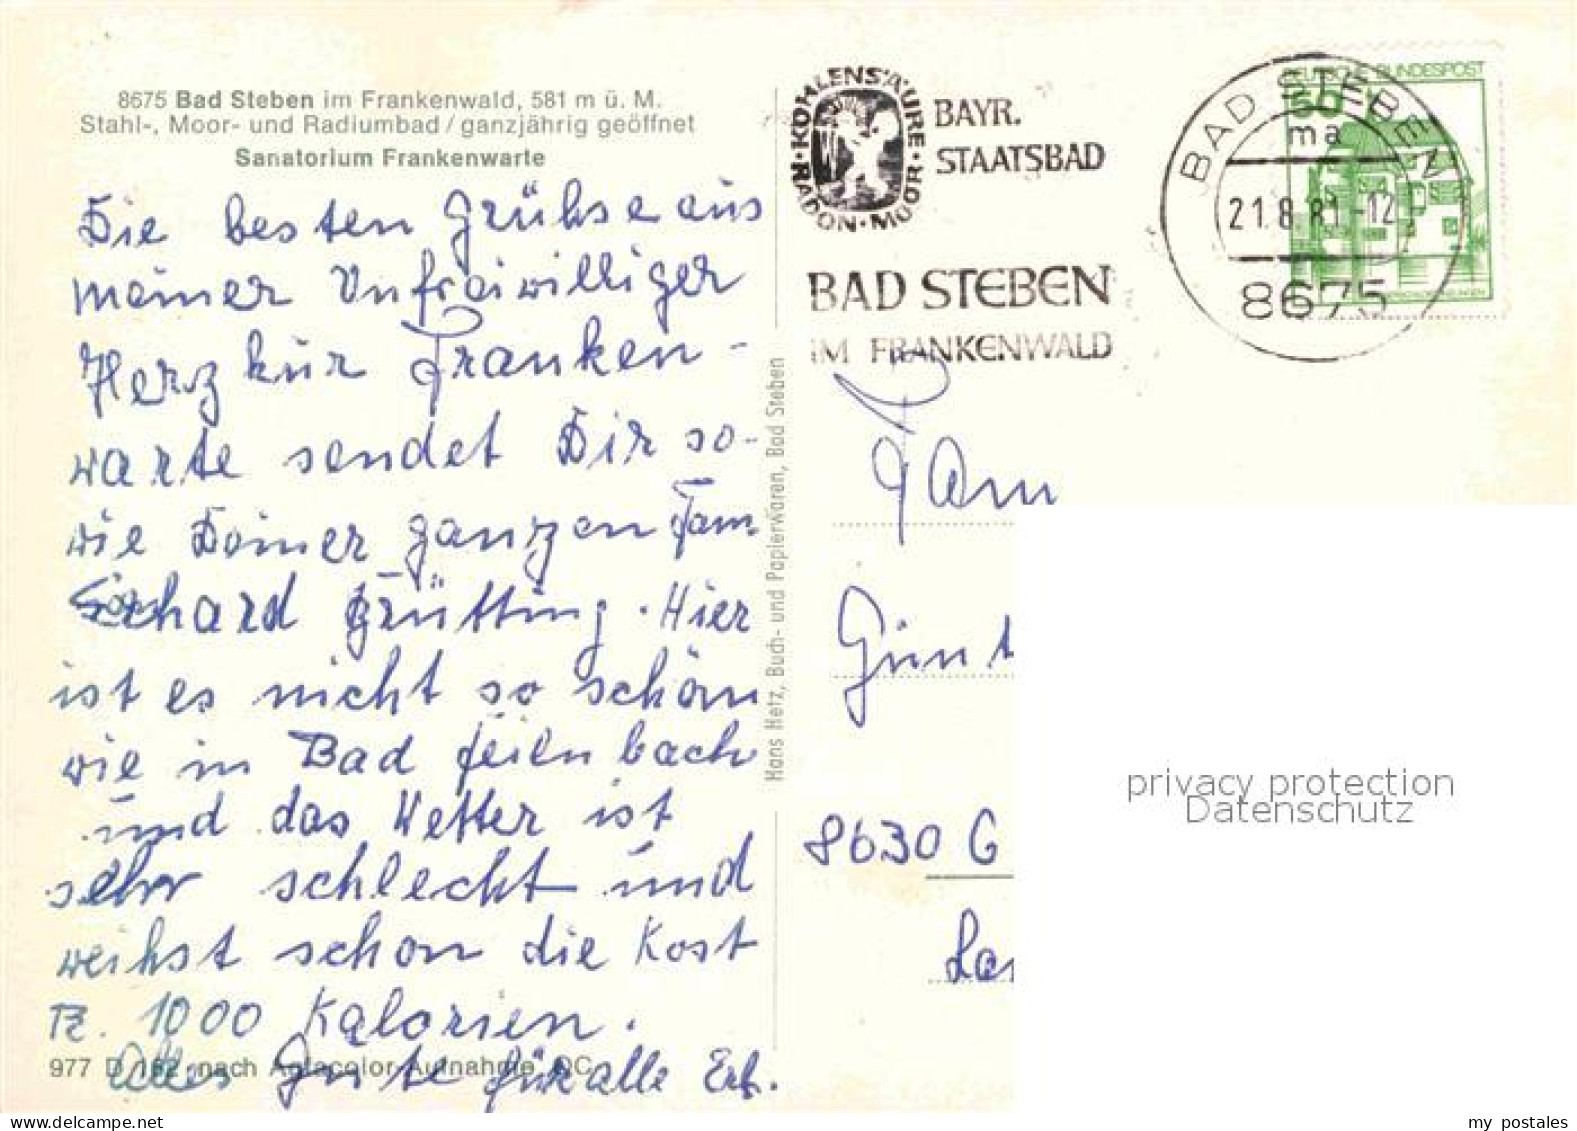 8675 Bad Steben im Frankenwald, 581 m ü. M.
Stahl-, Moor- und Radiumbad / ganzjährig geöffnet
Sanatorium Frankenwarte
Die besten Grühse aus
meiner Unfreiwilliger
Herzkur Franken-
warte sendet Dir so-
wie Deiner ganzen Fam.
Erhard Grütting. Hier
ist es nicht so schön
wie in Bad Feilnbach
und das Wetter ist
sehr schlecht und
weihst schon die Kost
1000 Kalorien.
Alles Gute für alle Erh.
977 D 182 nach Agfacolor-Aufnahme OC
Hans Hetz, Buch- und Papierwaren, Bad Steben
KOHLENSÄURE · MOOR · RADON ·
BAYR.
STAATSBAD
BAD STEBEN
IM FRANKENWALD
DEUTSCHE BUNDESPOST
50
BAD STEBEN
ma
21.8.81-12
8675
Fam
Günt
8630 C
privacy protection
Datenschutz
my postales